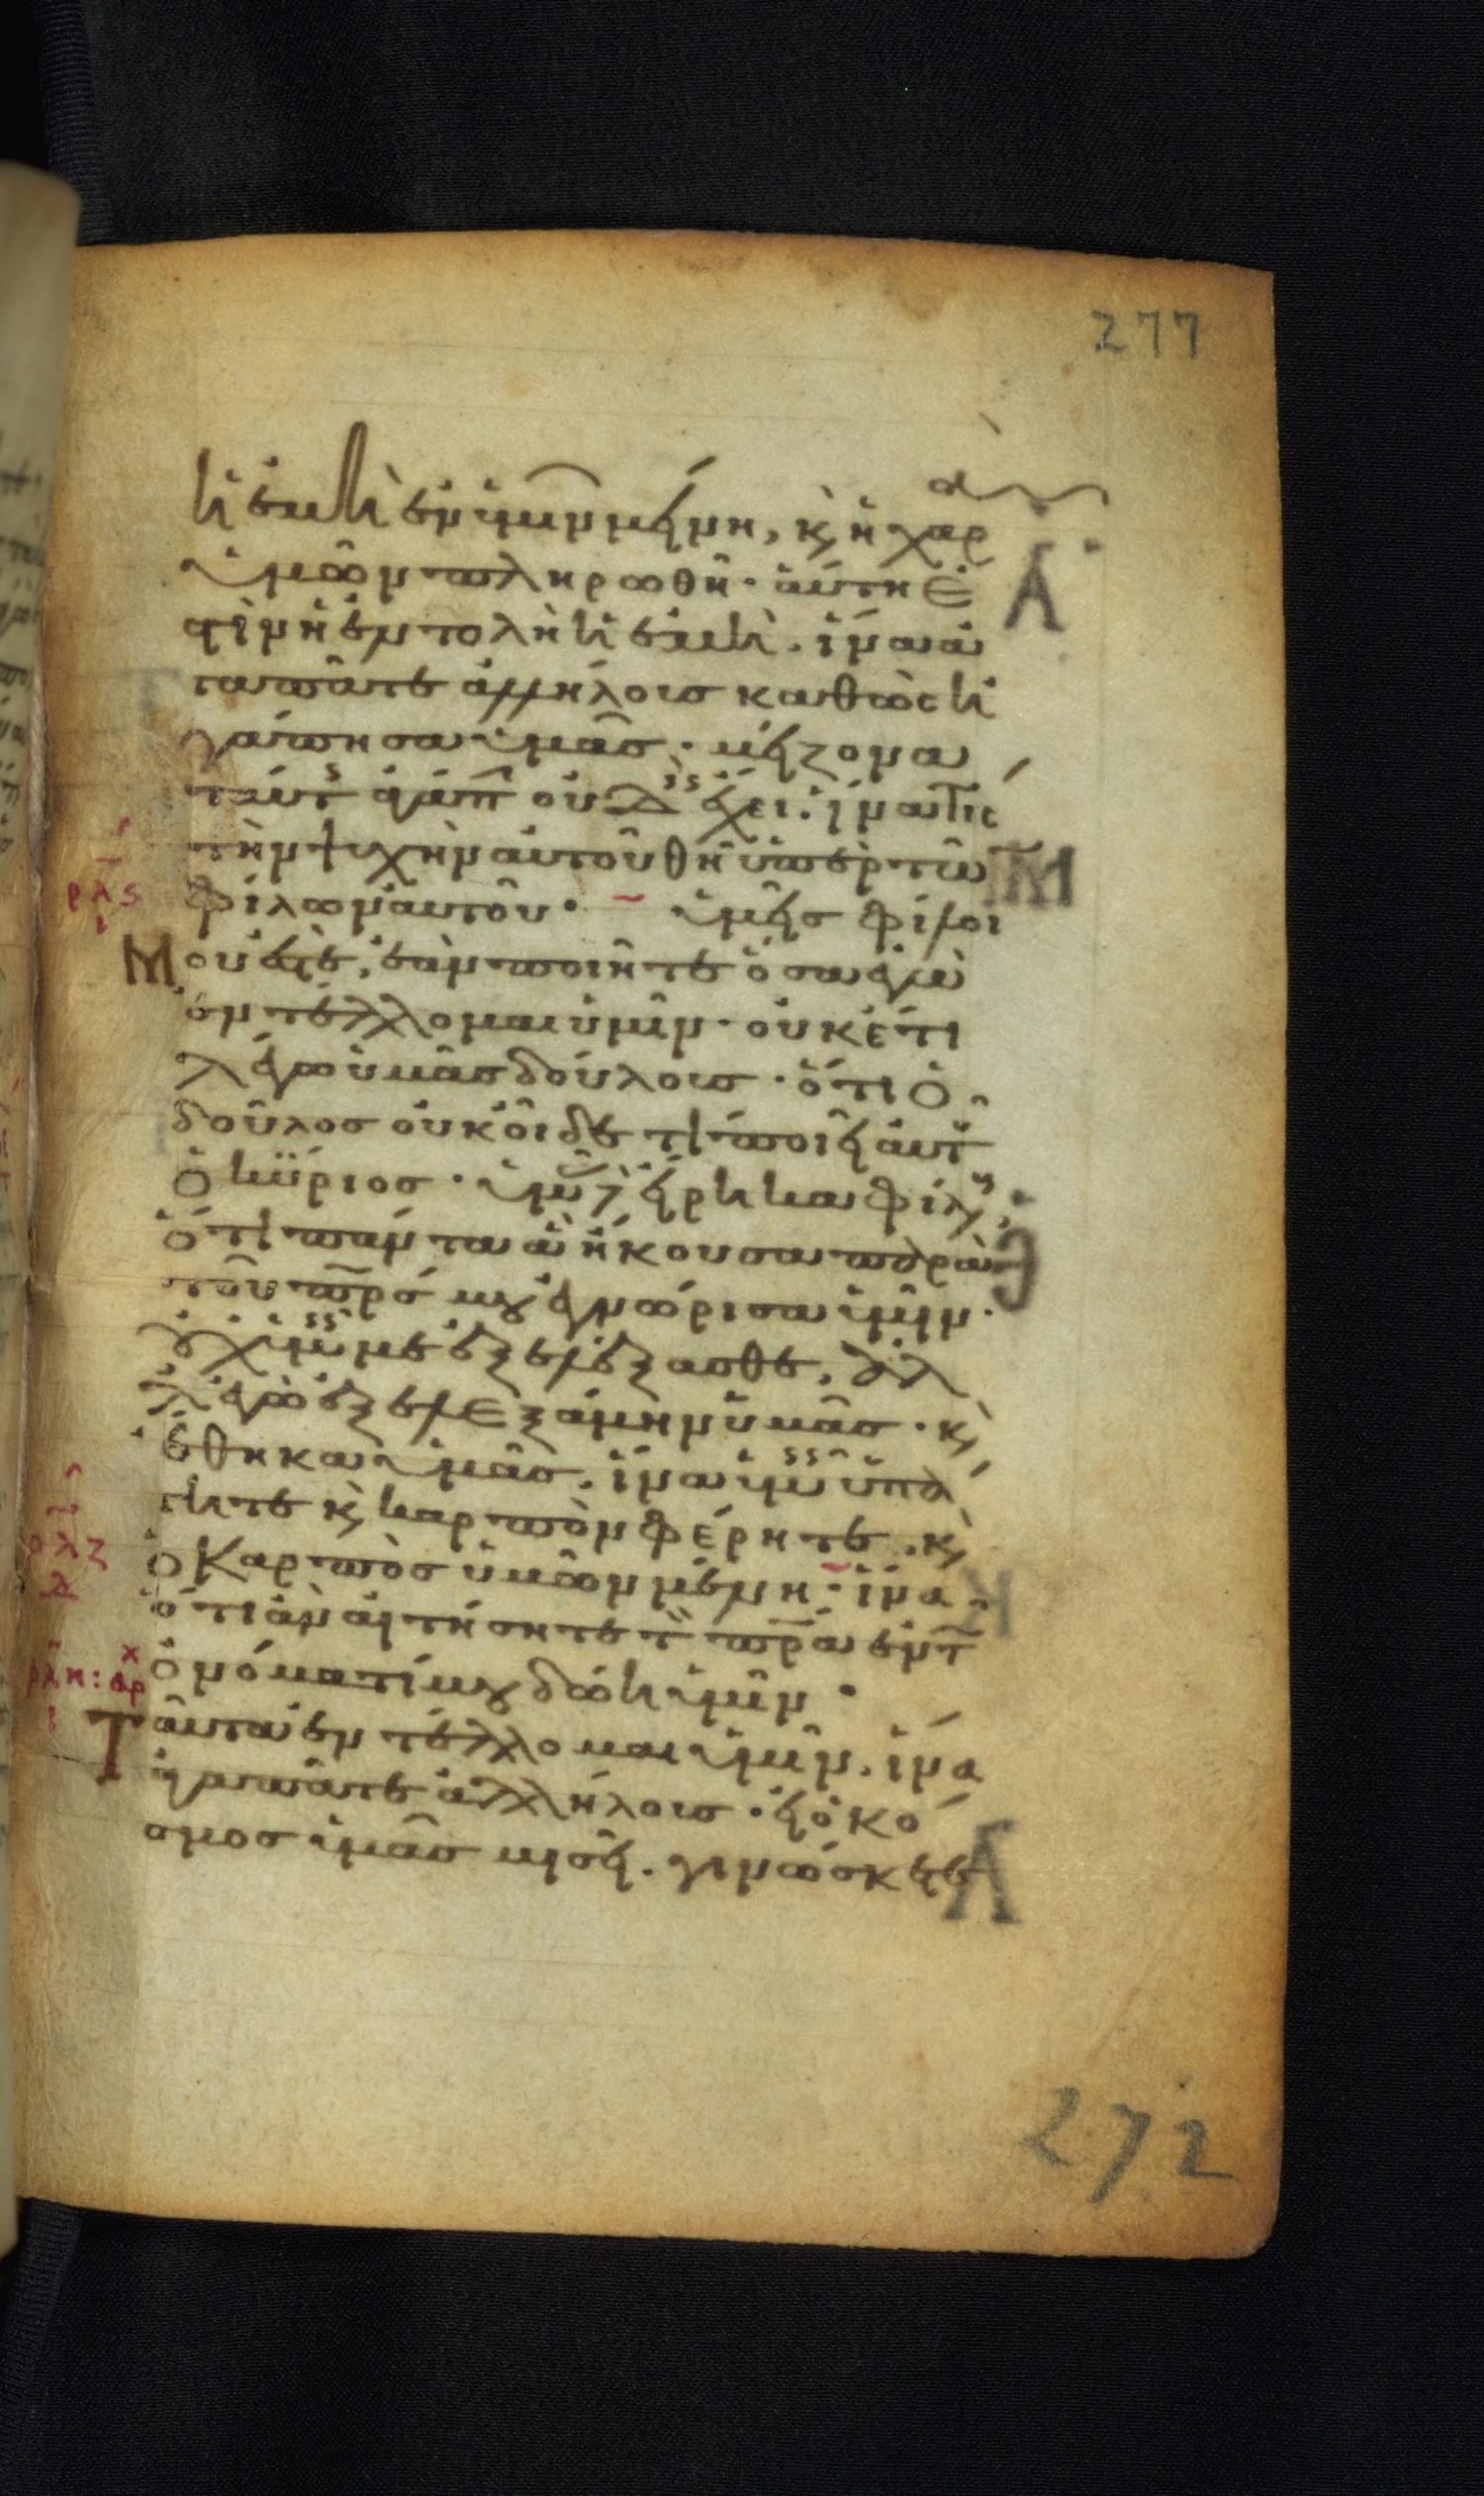 277
ἡ ἐμὴ ἐν ὑμῖν μείνη, κ, ἡ χαρὰ
ὑμῶν πληρωθῆ· αὕτη ἐ
στὶν ἡ ἐντολὴ ἡ ἐμὴ. ἵνα ἀ
γαπᾶτε ἀλλήλους καθὼς ἠ
γάπησα ὑμᾶς· μείζονα
ταύτης ἀγάπην οὐδεὶς ἔχει. ἵνα τίς
τὴν ψυχὴν αὐτοῦ θῆ ὑπὲρ τῶν
φίλων αὐτοῦ· ὑμεῖς φίλοι
ρλς
ι
Μου ἐστὲ, ἐὰν ποιῆτε ὅσα ἐγὼ
ἐντέλλομαι ὑμῖν· οὐκέτι
λέγω ὑμᾶς δούλους· ὅτι ὁ
δοῦλος οὐκ οἶδε τί ποιεῖ αὐτοῦ
ὁ κύριος· ὑμᾶς δὲ εἴρηκα φίλους,
ὅτι πάντα ἃ ἤκουσα παρὰ
τοῦ πρς μου ἐγνώρισα ὑμῖν·
οὐχ ὑμεῖς με ἐξελέξασθε, ἀλλ
ἐγὼ ἐξελεξάμην ὑμᾶς· κ,
ἔθηκα ὑμᾶς, ἵνα ὑμεῖς ὑπά
γητε κ, καρπὸν φέρητε. κ,
ρλζ
δ
ὁ Καρπὸς ὑμῶν μένη· ἵνα
ὅτι ἂν αἰτήσητε τὸν πρα ἐν τῶ
ρλη: αρχ
ι
ὀνόματί μου δώη ὑμῖν·
Ταῦτα ἐντέλλομαι ὑμῖν. ἵνα
ἀγαπᾶτε ἀλλήλους· εἰ ὁ κό
σμος ὑμᾶς μισεῖ. γινώσκετε
272